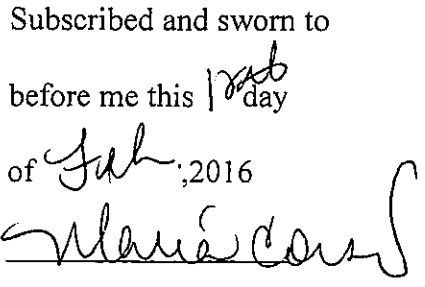 Subscribed and sworn to
before me this day
of Feb, 2016
Maria